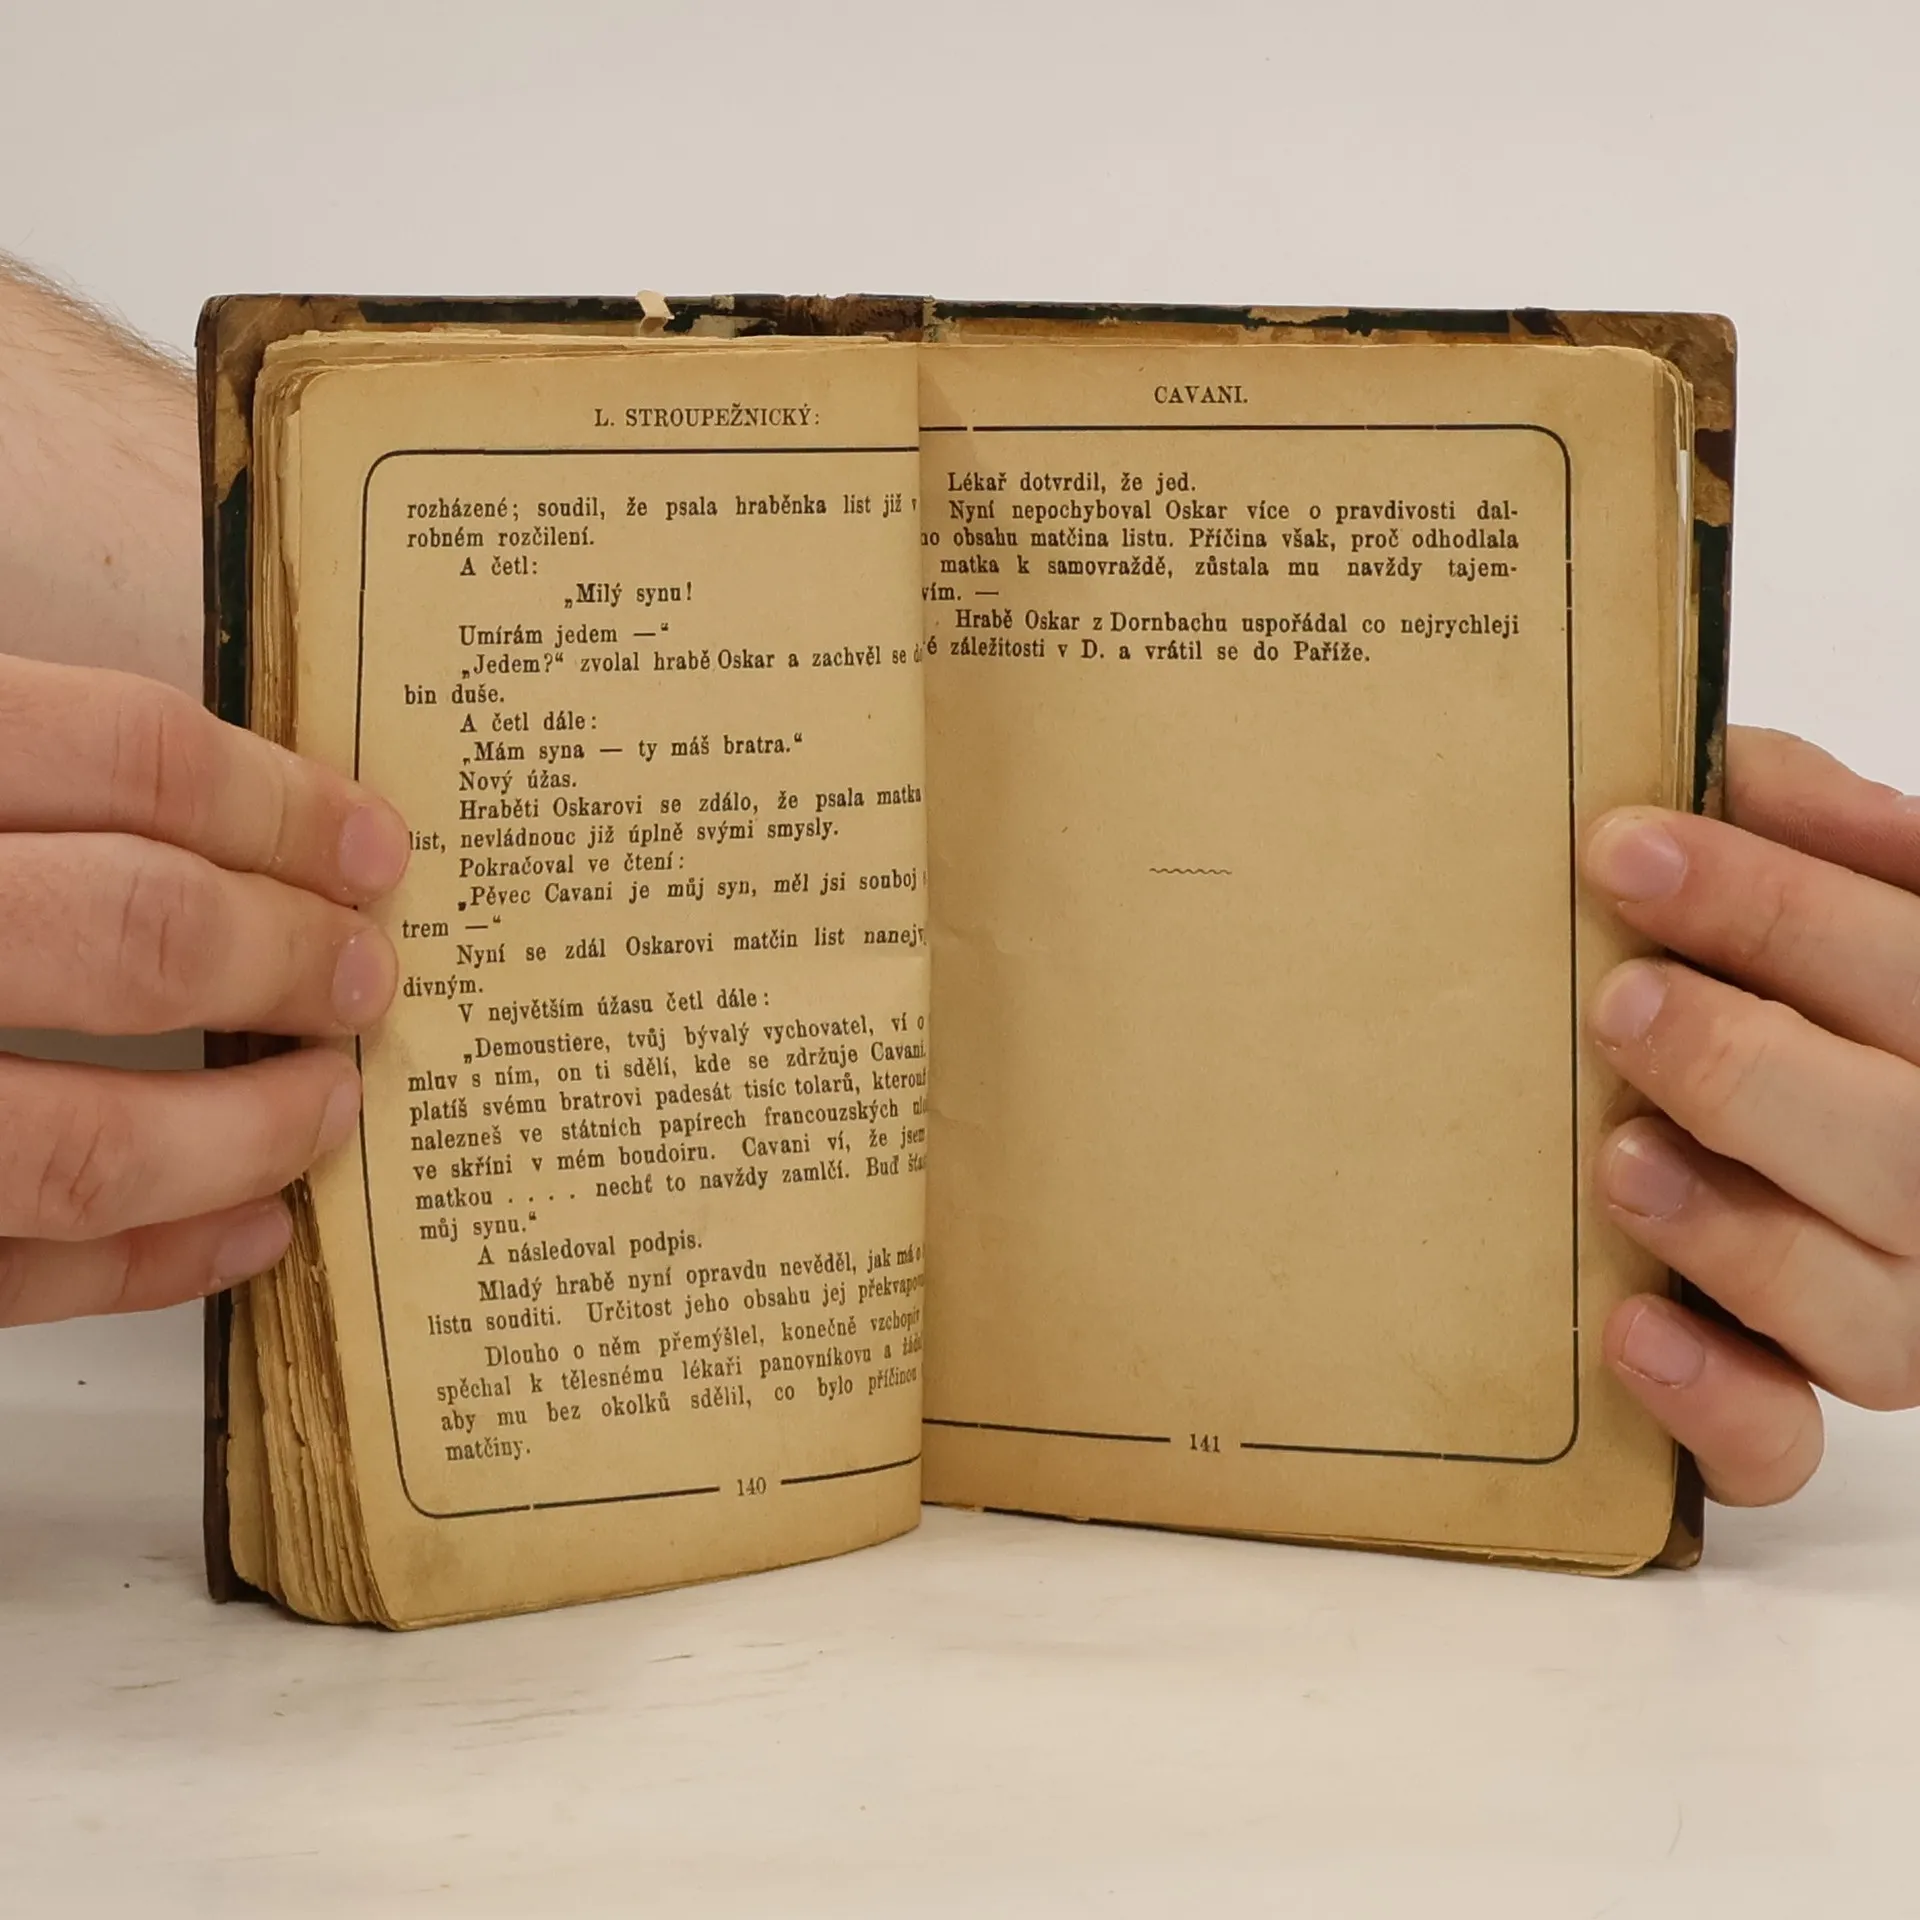 L. STROUPEŽNICKÝ:
rozházené; soudil, že psala hraběnka list již v
robném rozčilení.
A četl:
„Milý synu!
Umírám jedem —“
„Jedem?“ zvolal hrabě Oskar a zachvěl se
bin duše.
A četl dále:
„Mám syna — ty máš bratra.“
Nový úžas.
Hraběti Oskarovi se zdálo, že psala matka
list, nevládnouc již úplně svými smysly.
Pokračoval ve čtení:
„Pěvec Cavani je můj syn, měl jsi souboj
trem —“
Nyní se zdál Oskarovi matčin list
divným.
V největším úžasu četl dále:
„Demoustiere, tvůj bývalý vychovatel, ví o
mluv s ním, on ti sdělí, kde se zdržuje Cavani.
platíš svému bratrovi padesát tisíc tolarů,
nalezneš ve státních papírech francouzských
ve skříni v mém boudoiru. Cavani ví, že jsem
matkou . . . . nechť to navždy zamlčí. Buď
můj synu.“
A následoval podpis.
Mladý hrabě nyní opravdu nevěděl, jak má
listu souditi. Určitost jeho obsahu jej
Dlouho o něm přemýšlel, konečně
spěchal k tělesnému lékaři panovníkovu a
aby mu bez okolků sdělil, co bylo příčinou
matčiny.
140
CAVANI.
Lékař dotvrdil, že jed.
Nyní nepochyboval Oskar více o pravdivosti dal-
obsahu matčina listu. Příčina však, proč odhodlala
matka k samovraždě, zůstala mu navždy tajem-
vím. —
Hrabě Oskar z Dornbachu uspořádal co nejrychleji
záležitosti v D. a vrátil se do Paříže.
141